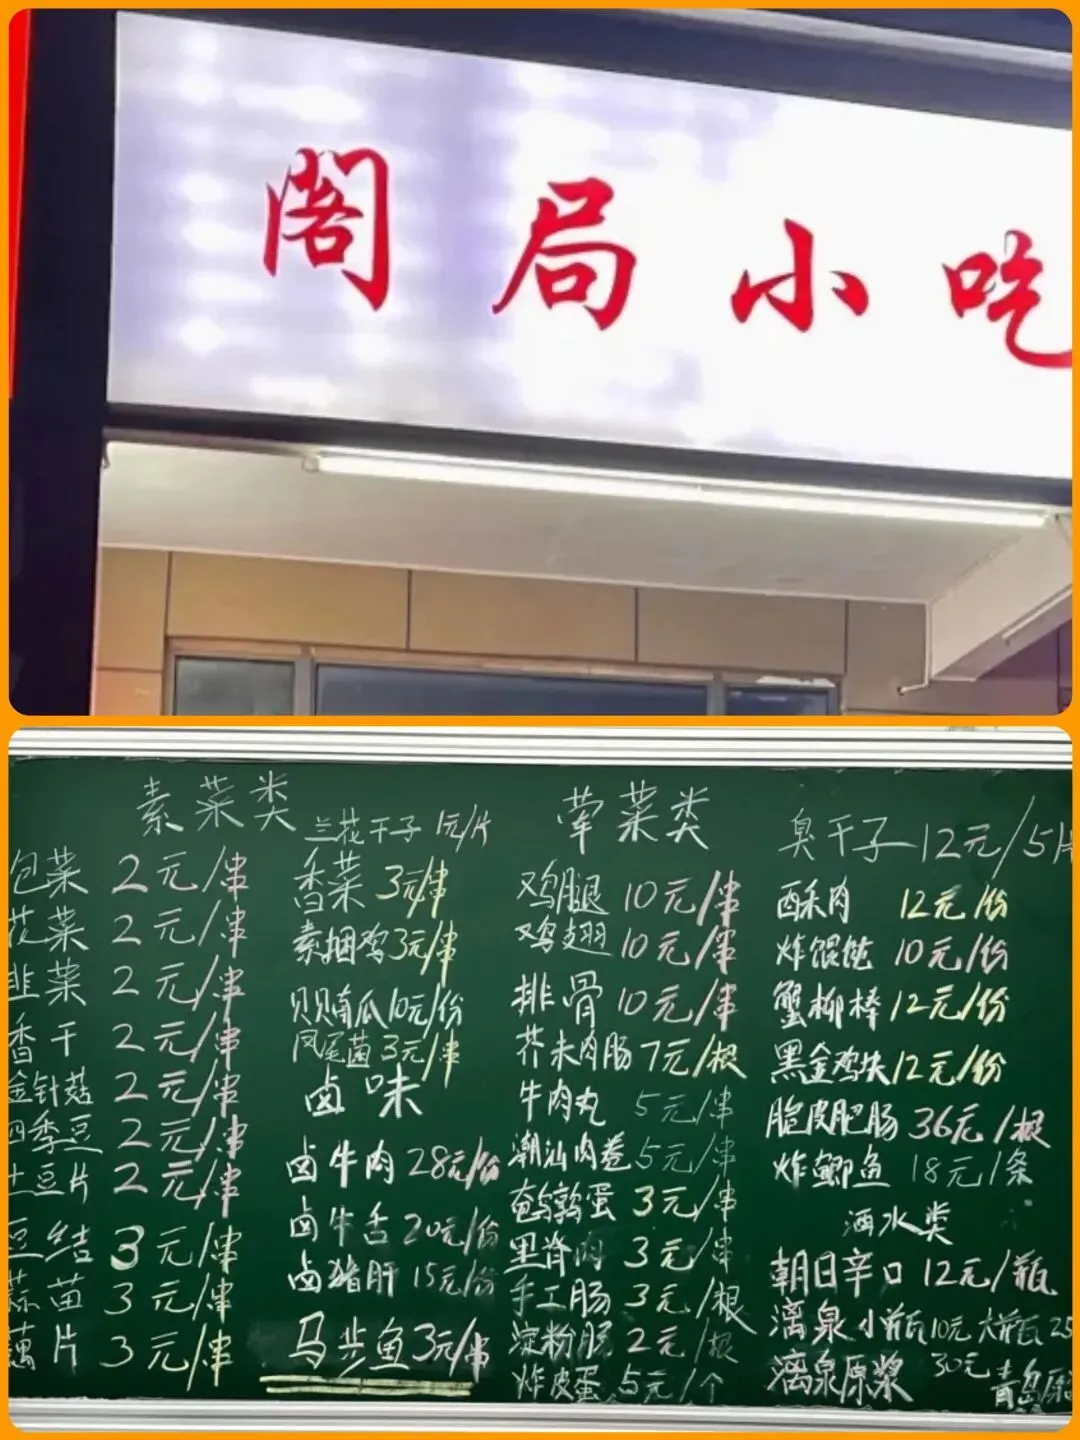 阁局小吃
素菜类
包菜 2元/串
花菜 2元/串
韭菜 2元/串
香干 2元/串
金针菇 2元/串
四季豆 2元/串
土豆片 2元/串
豆结 3元/串
蒜苗 3元/串
藕片 3元/串
兰花干子 1元/片
香菜 3元/串
素捆鸡 3元/串
贝贝南瓜 10元/份
凤尾菌 3元/串
卤味
卤牛肉 28元/份
卤牛舌 20元/份
卤猪肝 15元/份
马步鱼 3元/串
荤菜类
鸡腿 10元/串
鸡翅 10元/串
排骨 10元/串
芥末肉肠 7元/根
牛肉丸 5元/串
潮汕肉卷 5元/串
鹌鹑蛋 3元/串
里脊肉 3元/串
手工肠 3元/根
淀粉肠 2元/根
炸皮蛋 5元/个
臭干子 12元/5片
酥肉 12元/份
炸馄饨 10元/份
蟹柳棒 12元/份
黑金鸡块 12元/份
脆皮肥肠 36元/根
炸鲫鱼 18元/条
酒水类
朝日辛口 12元/瓶
漓泉小瓶10元 大瓶25
漓泉原浆 30元 青岛原